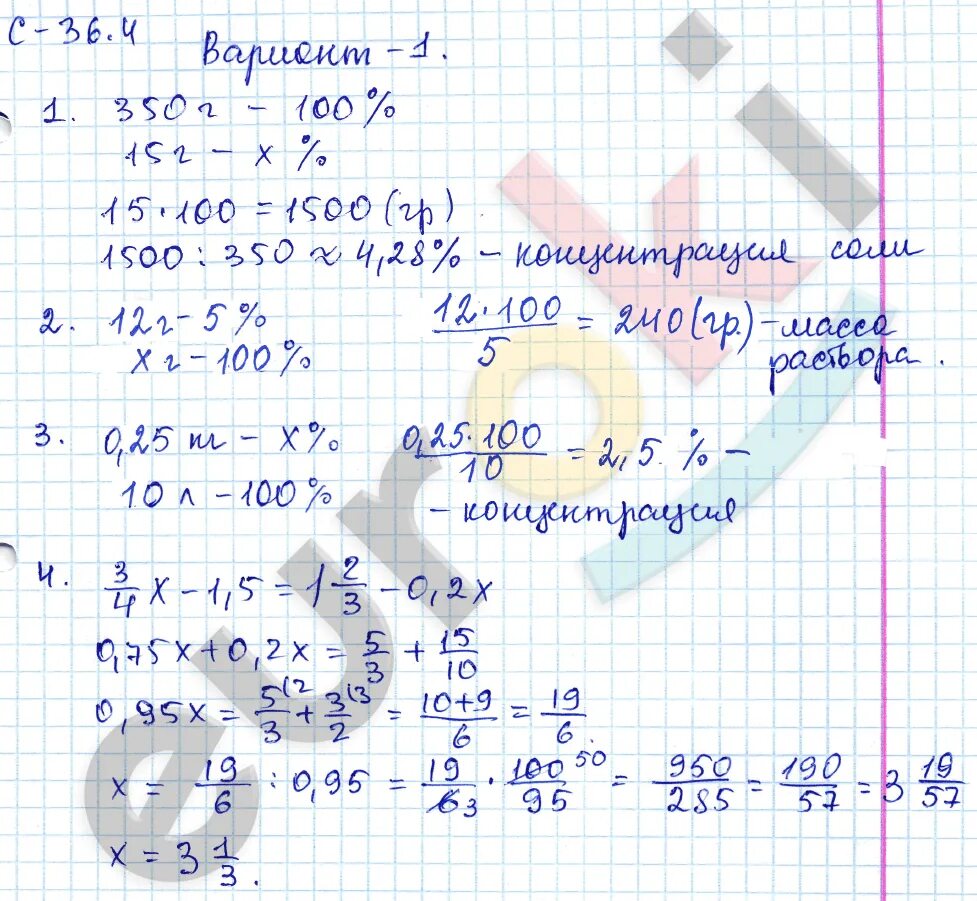 С-36.4
Вариант-1.
1. 350 г - 100%
15 г - х %
15·100 = 1500 (гр)
1500 : 350 ≈ 4,28% - концентрация соли
2. 12 г - 5% 12·100/5 = 240 (гр.) - масса
х г - 100% раствора.
3. 0,25 кг - х% 0,25·100/10 = 2,5 % -
10 л - 100% - концентрация
4. 3/4 х - 1,5 = 1 2/3 - 0,2х
0,75х + 0,2х = 5/3 + 15/10
0,95х = 5(2/3 + 3(3/2 = 10+9/6 = 19/6.
х = 19/6 : 0,95 = 19/6 3 · 100 50/95 = 950/285 = 190/57 = 3 19/57
х = 3 1/3.
euroki